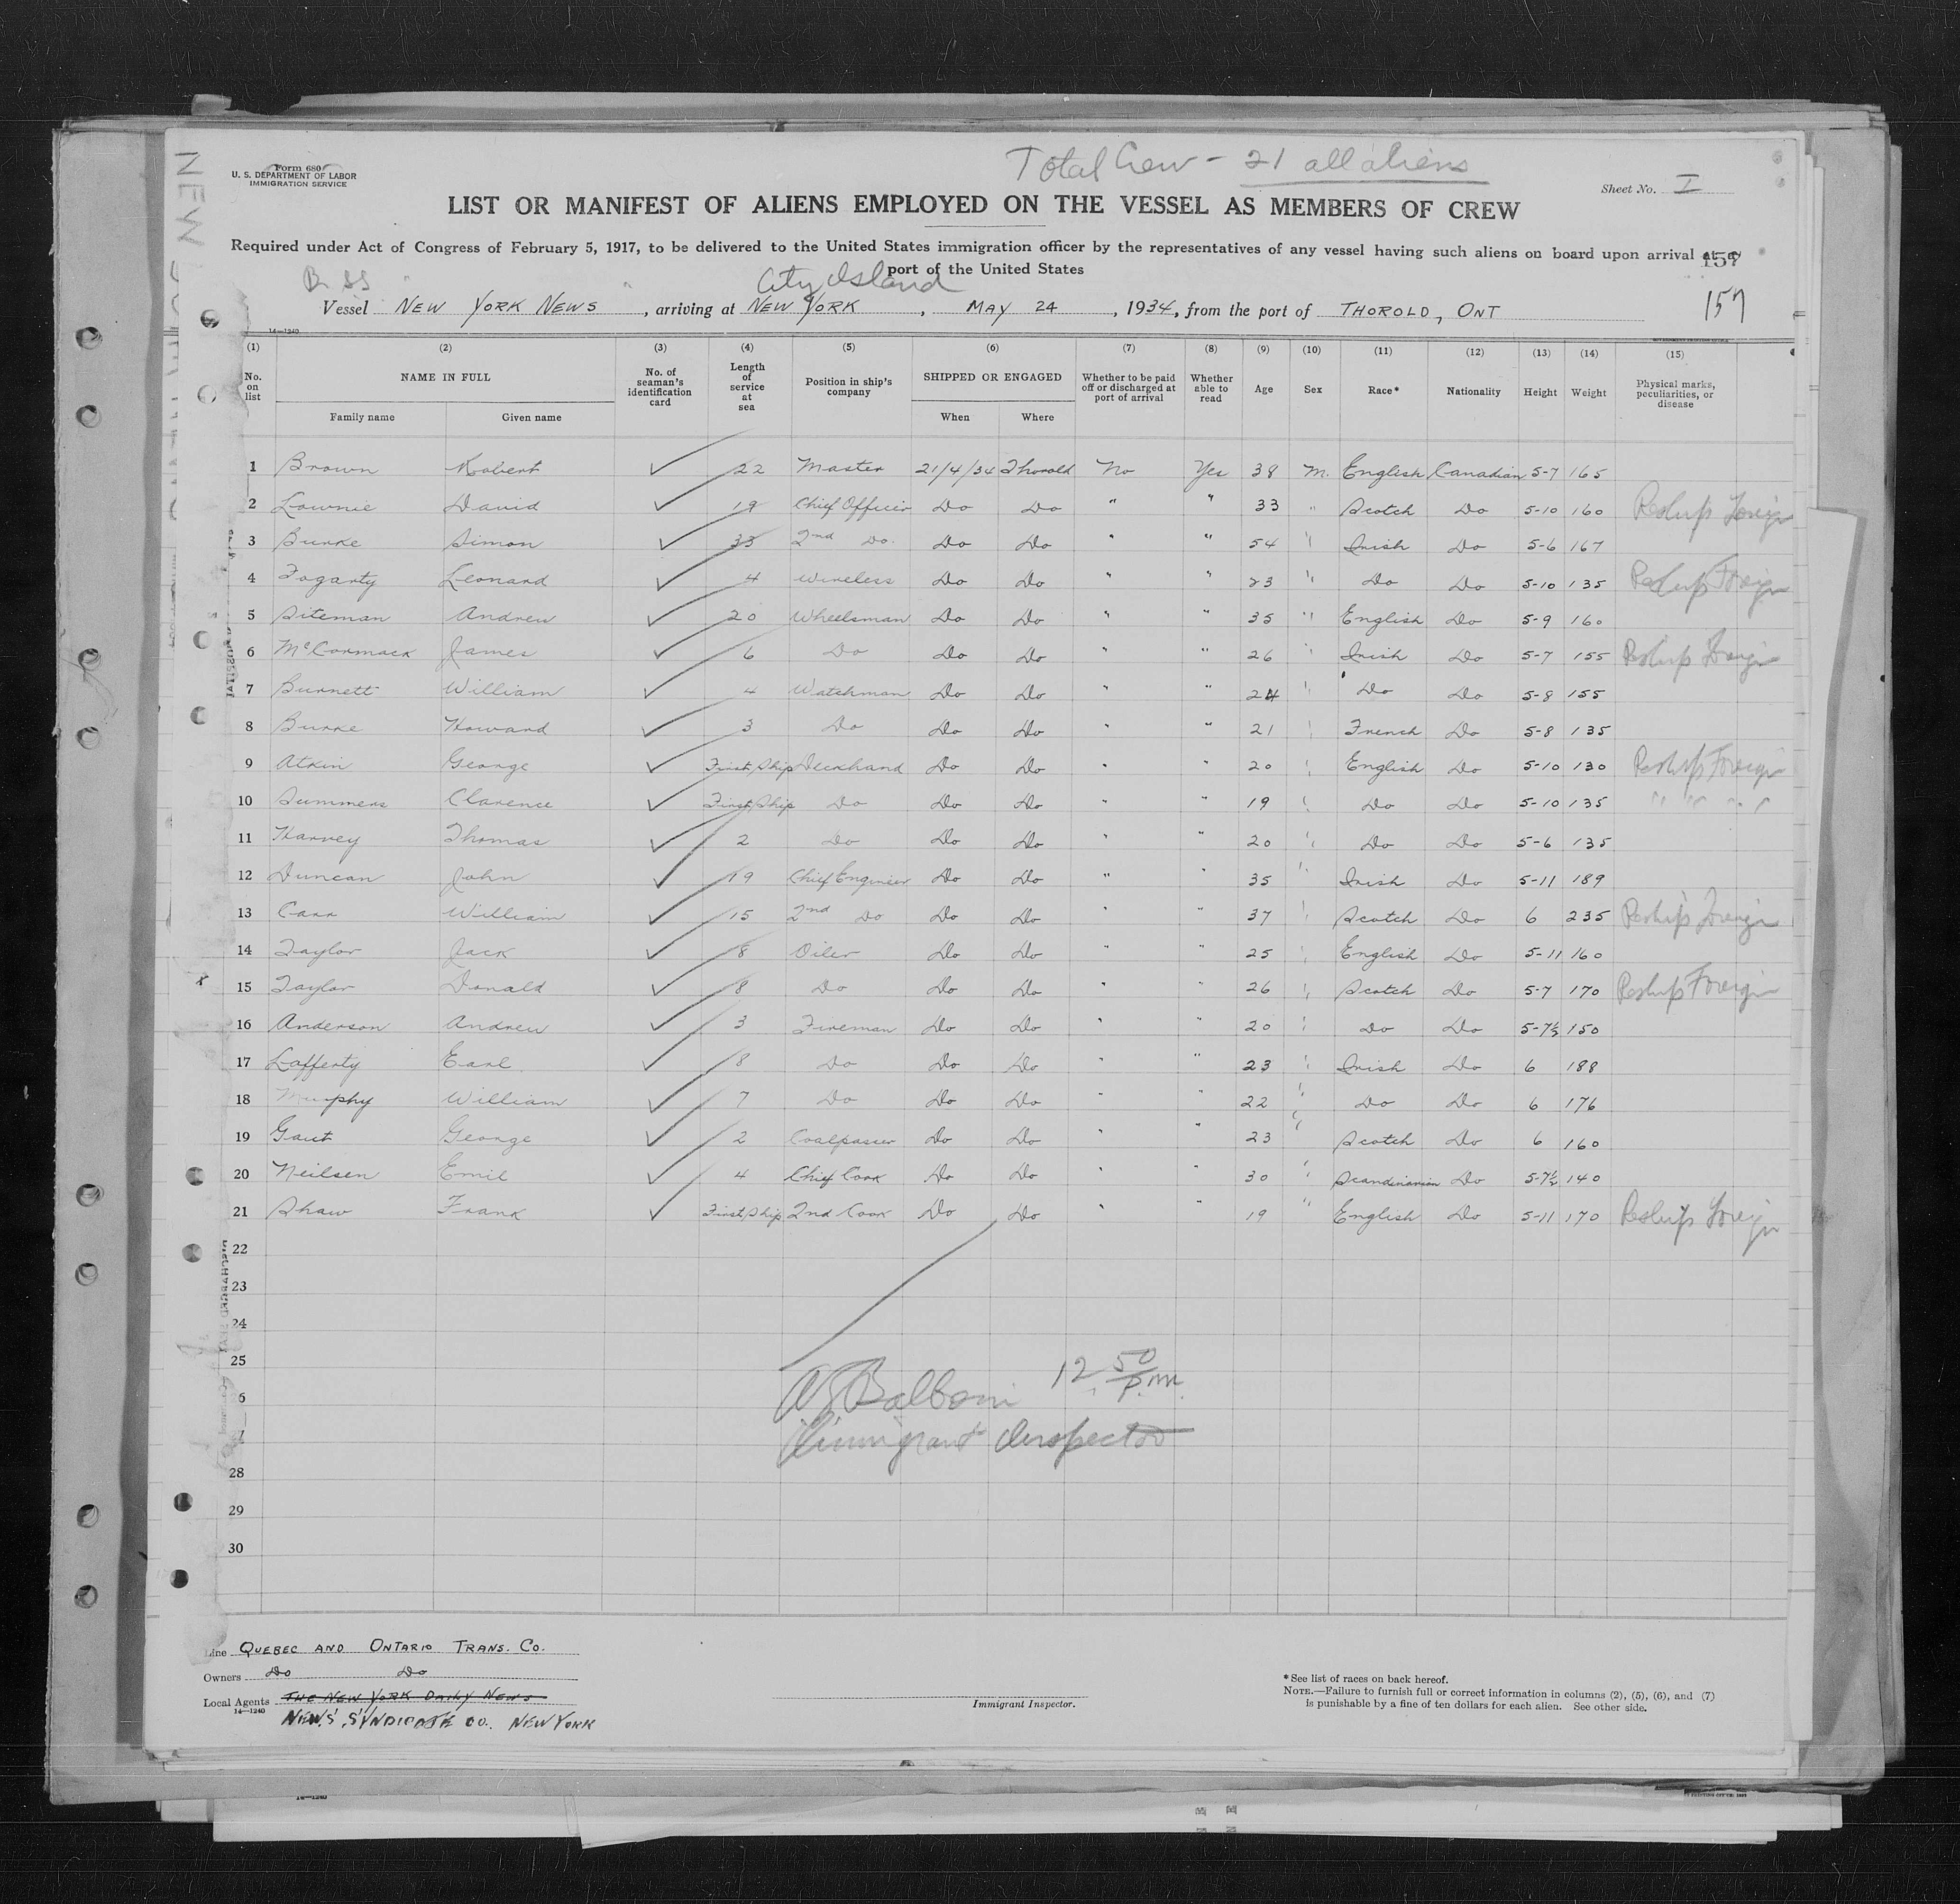 Total Crew - 21 all aliens
Form 680
U. S. DEPARTMENT OF LABOR
IMMIGRATION SERVICE
Sheet No. I
LIST OR MANIFEST OF ALIENS EMPLOYED ON THE VESSEL AS MEMBERS OF CREW
Required under Act of Congress of February 5, 1917, to be delivered to the United States immigration officer by the representatives of any vessel having such aliens on board upon arrival at a
port of the United States
157
Br SS
City Island
Vessel NEW YORK NEWS, arriving at NEW YORK, MAY 24, 1934, from the port of THOROLD, ONT
157
14—1240
(1) (2) (3) (4) (5) (6) (7) (8) (9) (10) (11) (12) (13) (14) (15)
No. on list NAME IN FULL No. of seaman's identification card Length of service at sea Position in ship's company SHIPPED OR ENGAGED Whether to be paid off or discharged at port of arrival Whether able to read Age Sex Race* Nationality Height Weight Physical marks, peculiarities, or disease
Family name Given name When Where
1 Brown Robert ✓ 22 Master 21/4/34 Thorold No Yes 38 M. English Canadian 5-7 165
2 Lownie David ✓ 19 Chief Officer Do Do " " 33 " Scotch Do 5-10 160 Reship Foreign
3 Burke Simon ✓ 33 2nd Do. Do Do " " 54 " Irish Do 5-6 167
4 Fogarty Leonard ✓ 4 Wireless Do Do " " 23 " Do Do 5-10 135 Reship Foreign
5 Siteman Andrew ✓ 20 Wheelsman Do Do " " 35 " English Do 5-9 160
6 McCormack James ✓ 6 Do Do Do " " 26 " Irish Do 5-7 155 Reship Foreign
7 Burnett William ✓ 4 Watchman Do Do " " 24 " Do Do 5-8 155
8 Burke Howard ✓ 3 Do Do Do " " 21 " French Do 5-8 135
9 Atkin George ✓ First Ship Deckhand Do Do " " 20 " English Do 5-10 130 Reship Foreign
10 Summers Clarence ✓ First Ship Do Do Do " " 19 " Do Do 5-10 135 " " " "
11 Harvey Thomas ✓ 2 Do Do Do " " 20 " Do Do 5-6 135
12 Duncan John ✓ 19 Chief Engineer Do Do " " 35 " Irish Do 5-11 189
13 Carr William ✓ 15 2nd Do Do Do " " 37 " Scotch Do 6 235 Reship Foreign
14 Taylor Jack ✓ 8 Oiler Do Do " " 25 " English Do 5-11 160
15 Taylor Donald ✓ 8 Do Do Do " " 26 " Scotch Do 5-7 170 Reship Foreign
16 Anderson Andrew ✓ 3 Fireman Do Do " " 20 " Do Do 5-7½ 150
17 Lafferty Earl ✓ 8 Do Do Do " " 23 " Irish Do 6 188
18 Murphy William ✓ 7 Do Do Do " " 22 " Do Do 6 176
19 Gaut George ✓ 2 Coalpasser Do Do " " 23 " Scotch Do 6 160
20 Neilsen Emil ✓ 4 Chief Cook Do Do " " 30 " Scandinavian Do 5-7½ 140
21 Shaw Frank ✓ First Ship 2nd Cook Do Do " " 19 " English Do 5-11 170 Reship Foreign
22
23
24
25
6
7
28
29
30
Balboni 12 50 p.m.
Immigrant Inspector
Line QUEBEC AND ONTARIO TRANS. CO.
Owners Do Do
Local Agents THE NEW YORK DAILY NEWS
14—1240
NEWS SYNDICATE CO. NEW YORK
Immigrant Inspector.
*See list of races on back hereof.
NOTE.—Failure to furnish full or correct information in columns (2), (5), (6), and (7)
is punishable by a fine of ten dollars for each alien. See other side.